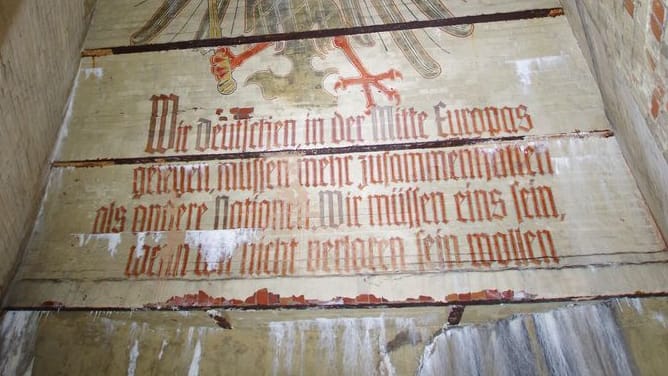 Wir deutschen, in der Mitte Europas
gelegen, müssen mehr zusammenhalten
als andere Nationen. Wir müssen eins sein,
wenn wir nicht verlaten sein wollen